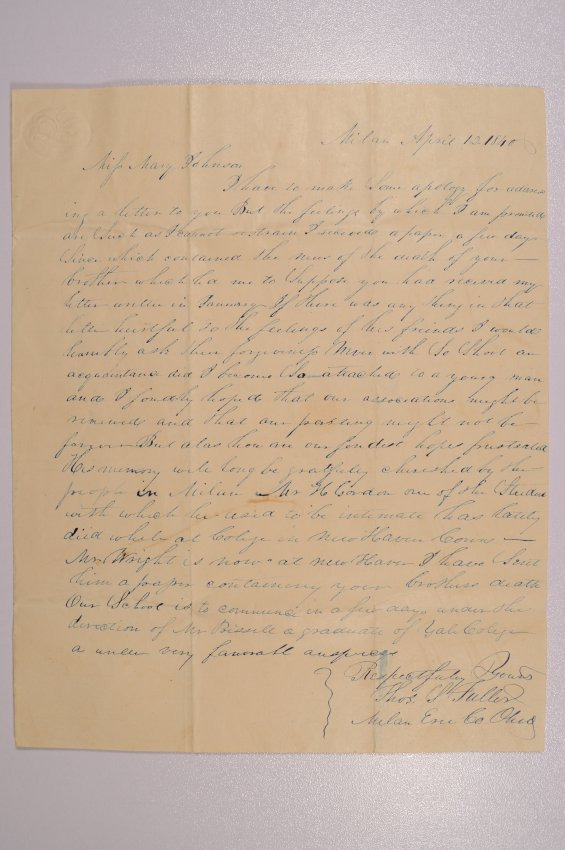 Milan April 12 1840
Miss Mary Johnson
I have to make Some apology for address
ing a letter to you But the feelings by which I am promted
are Such as I cannot restrain I received a paper a few days
Since which contained the news of the death of your
brother which led me to Suppose you had received my
letter writen in January If there was any thing in that
letter hurtful to the feelings of his friends I would
humbly ask their forgiveness Never with So Short an
acquaintance did I become So attached to a young man
and I fondly hoped that our associations might be
renewed and that our parting might not be
forever But alas how are our fondest hopes frustrated
His memory will long be gratfuly cherished by the
people in Milan Mr H Gordon one of the Students
with which he used to be intimate has lately
died while at Colege in New Haven Conn
Mr Wright is now at New Haven I have Sent
him a paper containing your brothers death
Our School is to commence in a few days under the
direction of Mr Bissell a graduate of Yale Colege
a under very favorall auspices
Respectfuly Yours
Thos. Fuller
Milan Erie Co Ohio